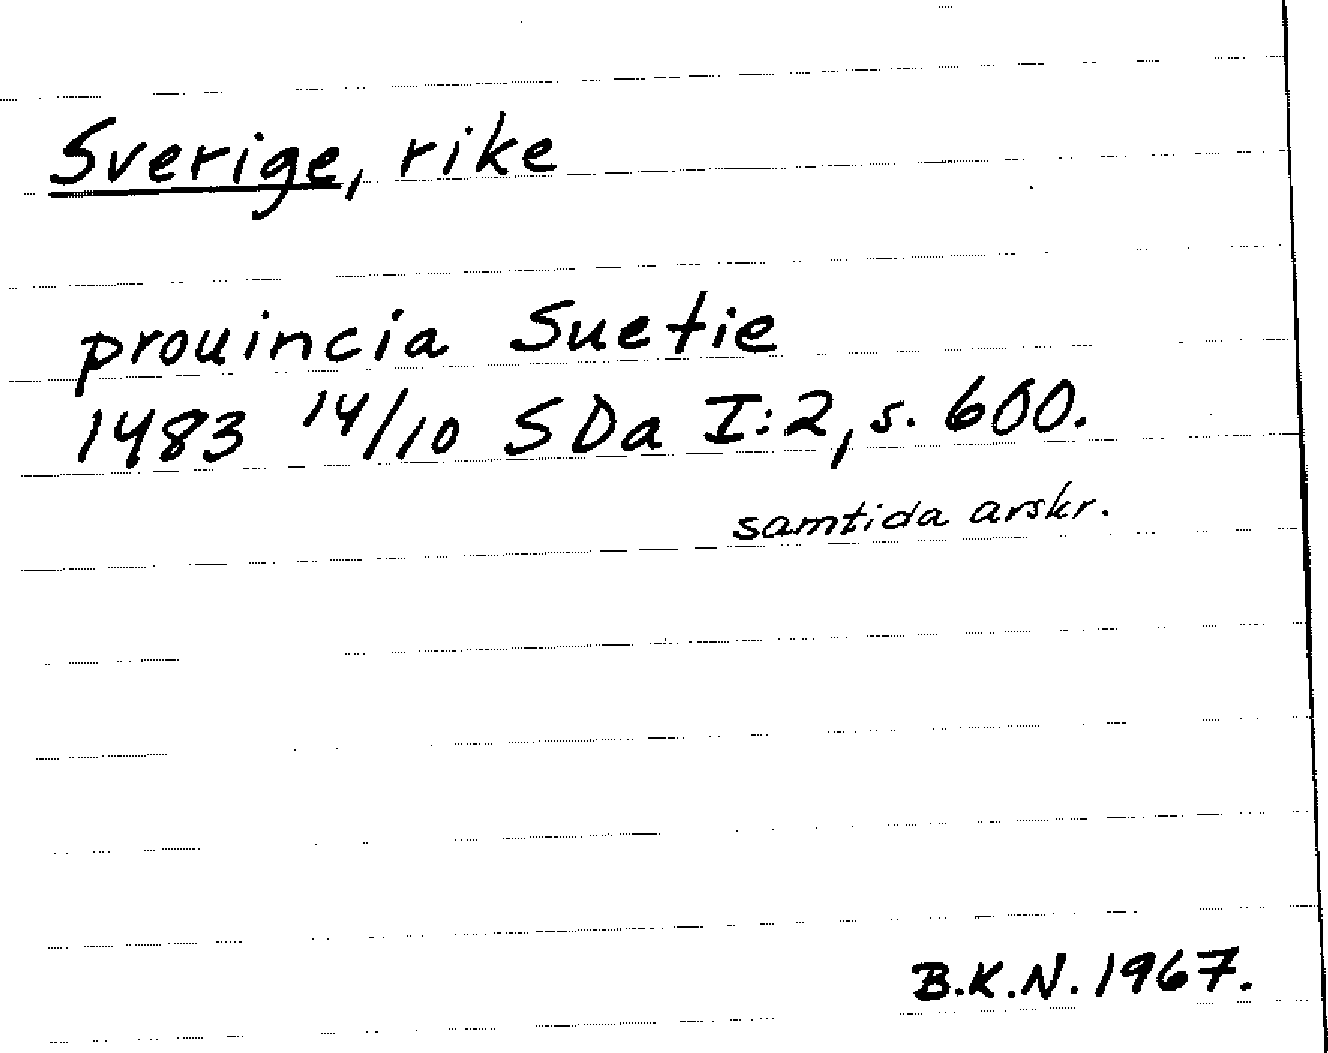 Sverige, rike
prouincia Suetie
1483 14/10 SDa I:2, s. 600.
samtida avskr.
B.K.N. 1967.